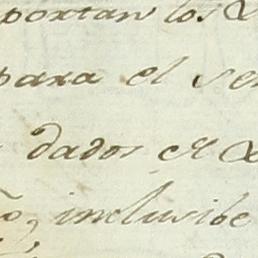 portan los
para el ser
dados el
o, inclusibe